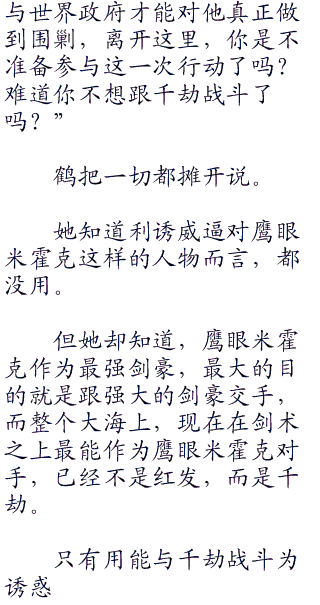 与世界政府才能对他真正做
到围剿，离开这里，你是不
准备参与这一次行动了吗？
难道你不想跟千劫战斗了
吗？”
鹤把一切都摊开说。
她知道利诱威逼对鹰眼
米霍克这样的人物而言，都
没用。
但她却知道，鹰眼米霍
克作为最强剑豪，最大的目
的就是跟强大的剑豪交手，
而整个大海上，现在在剑术
之上最能作为鹰眼米霍克对
手，已经不是红发，而是千
劫。
只有用能与千劫战斗为
诱惑